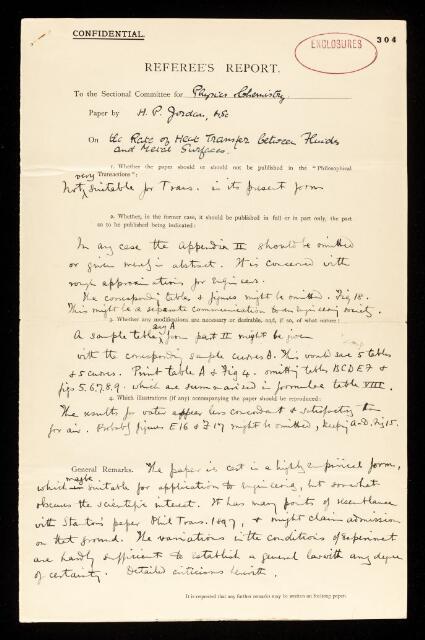 CONFIDENTIAL.
ENCLOSURES
304
REFEREE'S REPORT.
To the Sectional Committee for Physics & Chemistry
Paper by H. P. Jordan, MSc
On the Rate of Heat Transfer between Fluids
and Metal Surfaces.
1. Whether the paper should or should not be published in the "Philosophical
Transactions":
very
Not suitable for Trans. in its present form
2. Whether, in the former case, it should be published in full or in part only, the part
so to be published being indicated:
In any case the Appendix II should be omitted
or given merely in abstract. It is concerned with
rough approximations for Engineers.
The corresponding tables & figures might be omitted. Fig 18.
This might be a separate communication to an engineering society.
3. Whether any modifications are necessary or desirable, and, if so, of what nature:
say A
A sample table from part II might be given
with the corresponding sample curves B. This would save 5 tables
& 5 curves. Print table A & Fig 4. omitting tables B C D E F &
figs 5, 6, 7, 8, 9. which are summarised in formulae table VIII.
4. Which illustrations (if any) accompanying the paper should be reproduced:
The results for water appear less concordant & satisfactory than
for air. Probably figures E 16 & F 17 might be omitted, keeping A-D, Fig 15.
General Remarks. The paper is cast in a highly empirical form,
maybe
which is suitable for application to Engineering, but somewhat
obscures the scientific interest. It has many points of resemblance
with Stanton's paper Phil Trans. 1897, & might claim admission
on that ground. The variations in the conditions of experiment
are hardly sufficient to establish a general law with any degree
of certainty. Detailed criticisms herewith.
It is requested that any further remarks may be written on foolscap paper.